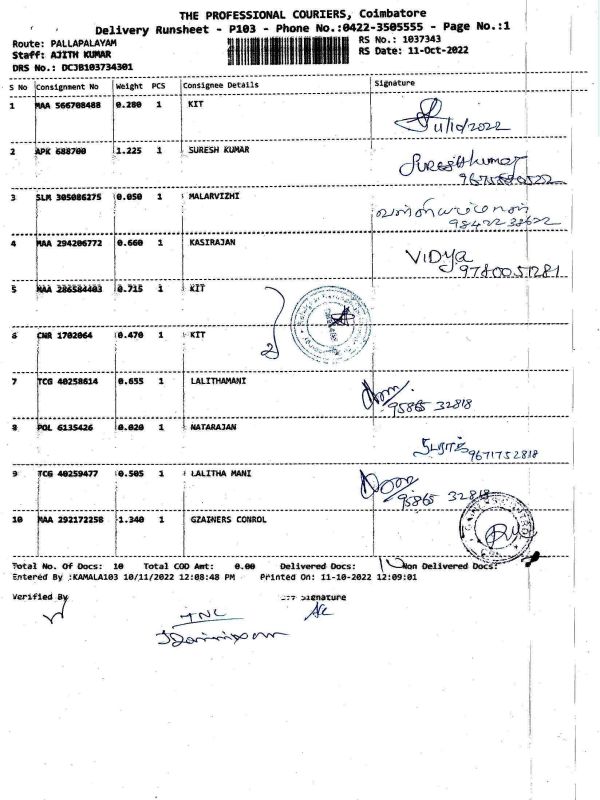 THE PROFESSIONAL COURIERS, Coimbatore
Delivery Runsheet - P103 - Phone No.:0422-3505555 - Page No.:1
Route: PALLAPALAYAM RS No.: 1037343
Staff: AJITH KUMAR RS Date: 11-Oct-2022
DRS No.: DCJB103734301
S No Consignment No Weight PCS Consignee Details Signature
1 MAA 566708488 0.280 1 KIT
11/10/2022
2 APK 688700 1.225 1 SURESH KUMAR Sureshkumar
3 SLM 305086275 0.050 1 MALARVIZHI
9842238622
4 MAA 294206772 0.660 1 KASIRAJAN VIDya
9780051281
5 MAA 286584403 0.715 1 KIT
2
6 CNR 1702064 0.470 1 KIT
7 TCG 40258614 0.655 1 LALITHAMANI
95865 32818
8 POL 6135426 0.020 1 NATARAJAN 9671752818
9 TCG 40259477 0.505 1 LALITHA MANI
95865 32818
10 MAA 292172258 1.340 1 GZAINERS CONROL
Total No. Of Docs: 10 Total COD Amt: 0.00 Delivered Docs: 10 Non Delivered Docs:
Entered By :KAMALA103 10/11/2022 12:08:48 PM Printed On: 11-10-2022 12:09:01
Verified By Signature